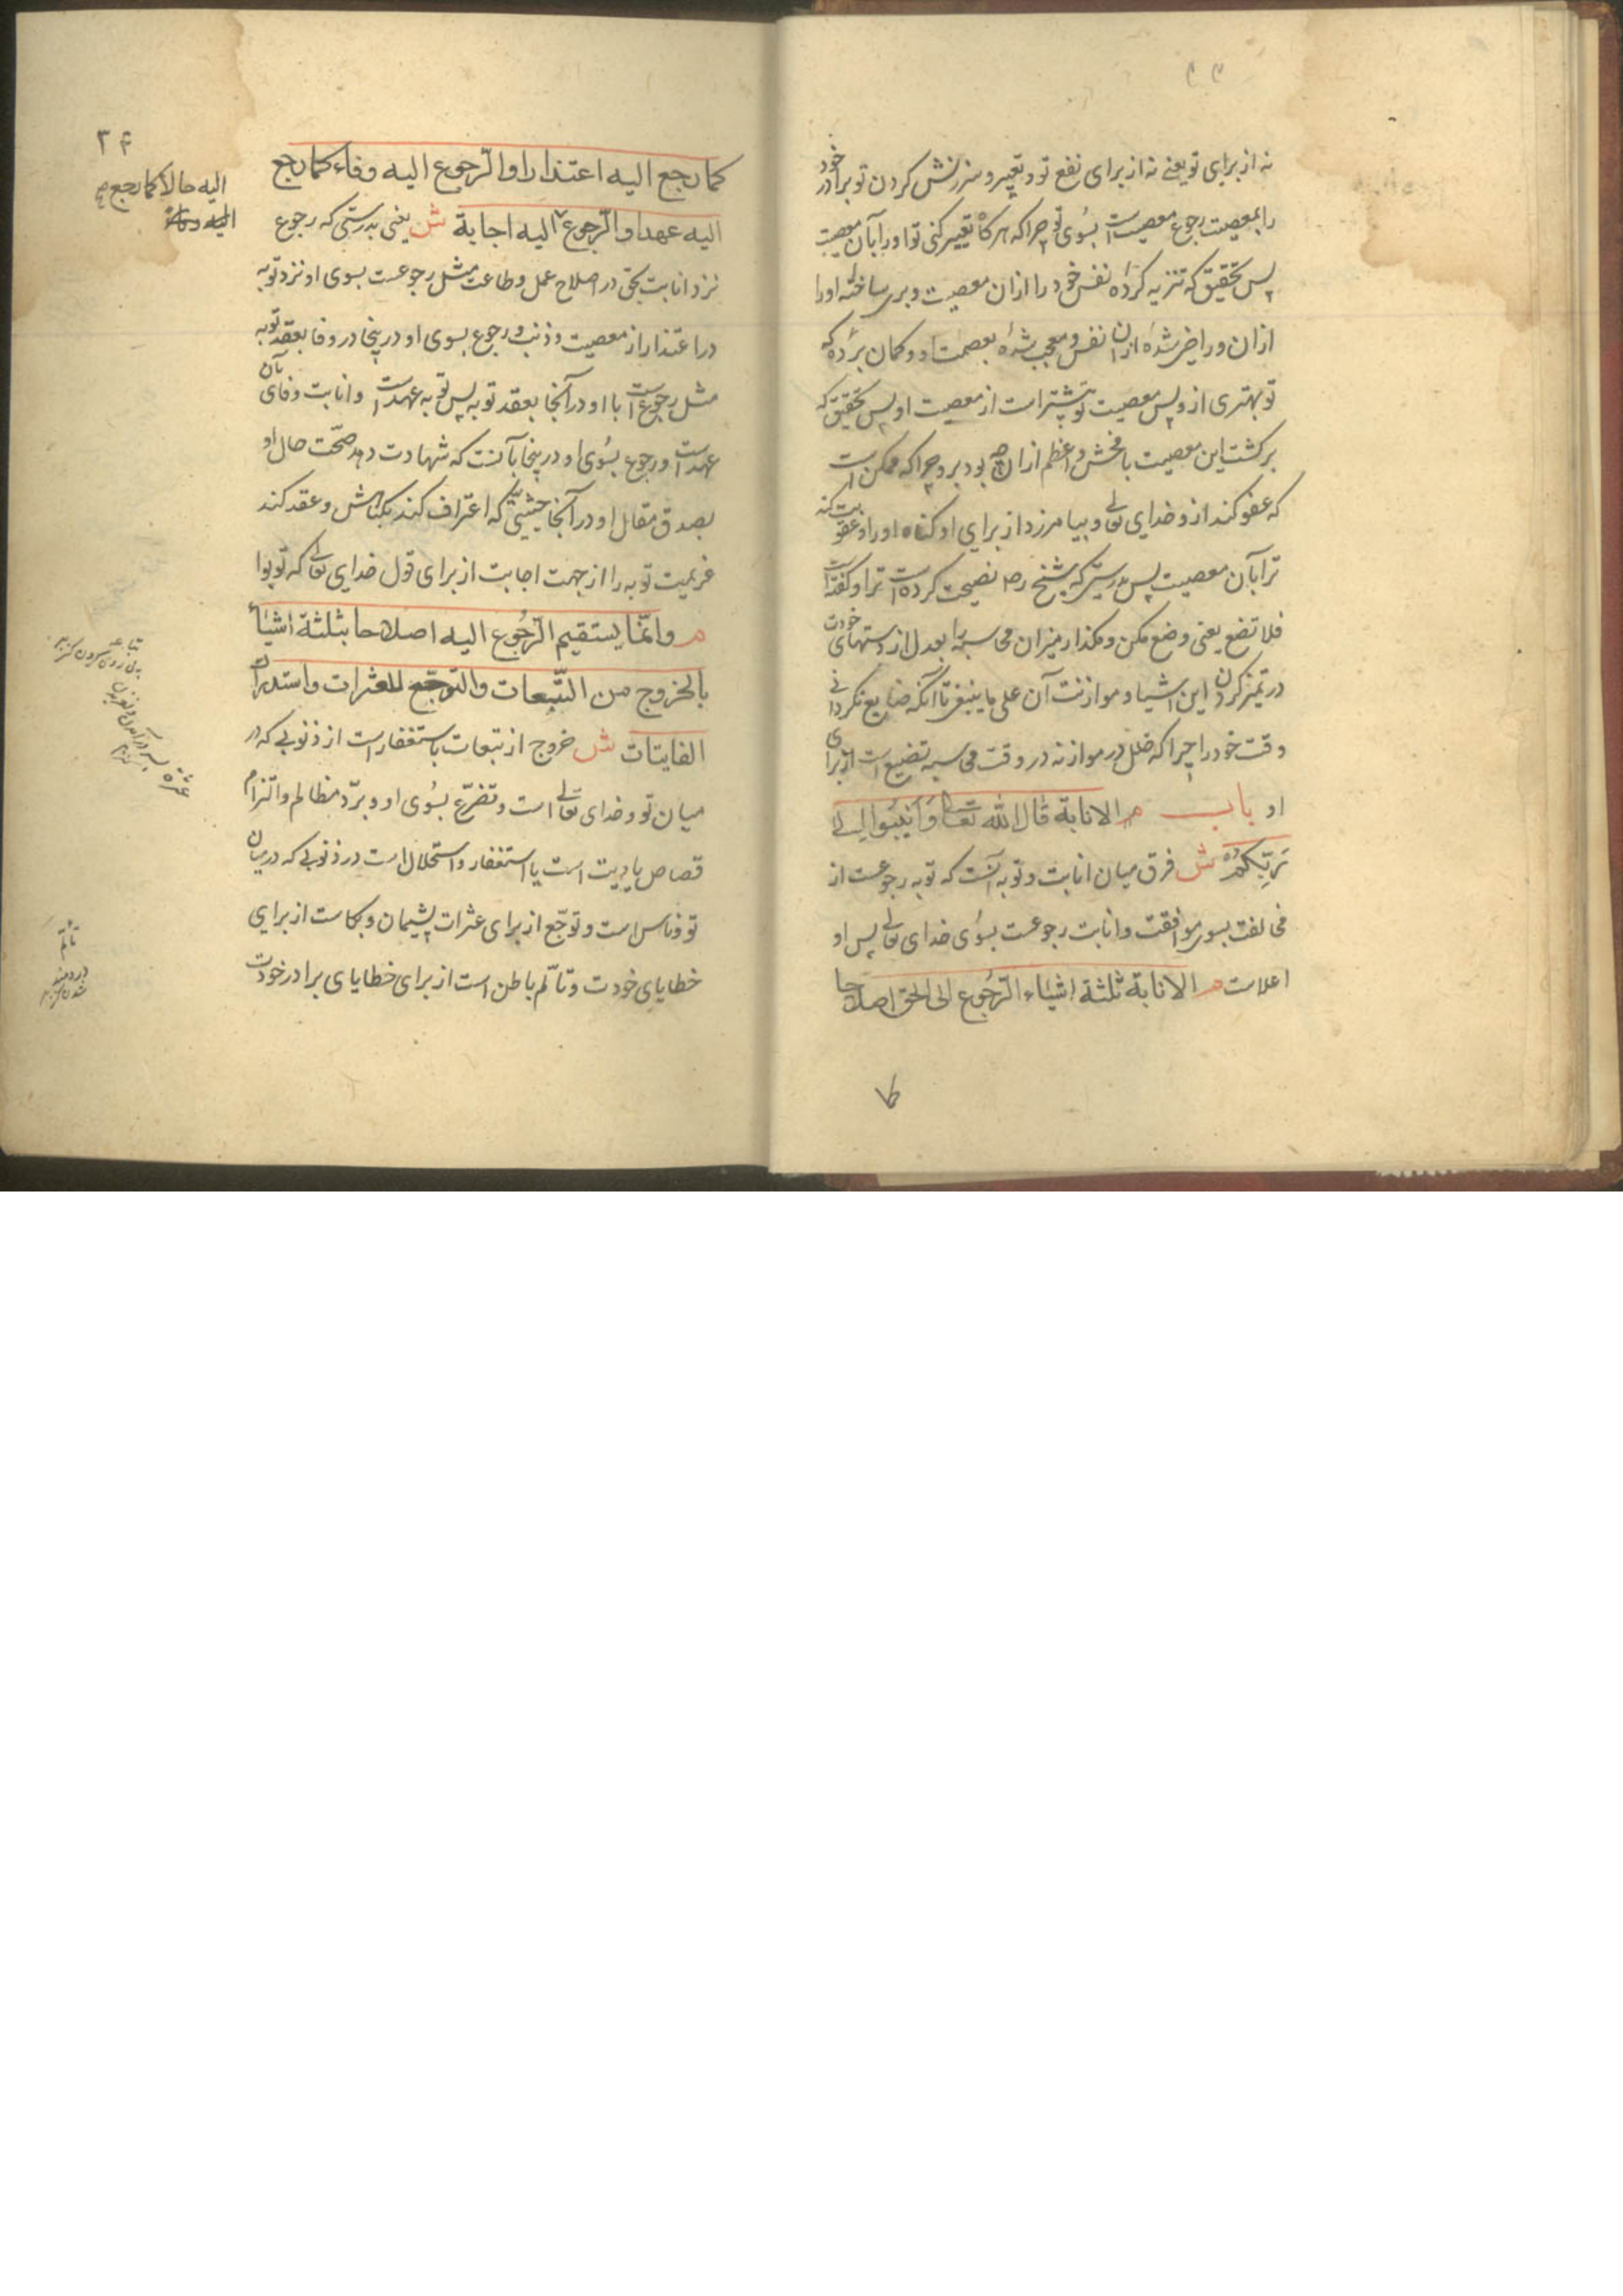 نه از برای تو یعنی نه از برای نفع تو و تعییر و سرزنش کردن تو برادر خود
را بمعصیت رجوع معصیت است بسوی تو چرا که هر کاه تعییر کنی تو او را بآن معصیت
پس تحقیق که تنزیه کردهٔ نفس خود را ازان معصیت و بری ساختهٔ او را
ازان و راضی شدهٔ ازان نفس و معجب شدهٔ بعصمت او و کمان بردهٔ که
تو بهتری ازو پس معصیت تو بیشتر است از معصیت او پس تحقیق که
برکشت این معصیت با فحش و اعظم ازان چه بود برو چرا که ممکن است
که عفو کند ازو خدای تعالی و بیامرزد از برای او کناه او را و عقوبت کند
ترا بآن معصیت پس بدرستی که شیخ ره نصیحت کرده است ترا و کفته است
فلا تضع یعنی وضع مکن و مکذار میزان محاسبه را بعدل از دستهای خودت
در تمیز کردن این اشیا و موازنت آن علی ما ینبغی تا آنکه ضایع نکردانی
وقت خود را چرا که خلل در موازنه در وقت محاسبه تضییع است از برای
او باب م الانابة قال الله تعالی وانیبوا الی
ربکم ش فرق میان انابت و توبه آنست که توبه رجوعست از
مخالفت بسوی موافقت و انابت رجوعست بسوی خدای تعالی پس او
اعلاست م الانابة ثلثة اشیاء الرجوع الی الحق اصلاحا
۳۴
کما رجع الیه اعتذارا والرجوع الیه وفاء کما رجع
الیه عهدا والرجوع الیه اجابة ش یعنی بدرستی که رجوع
الیه حالا کما رجع
نزد انابت بحق در اصلاح عمل و طاعت مثل رجوعست بسوی او نزد توبه
در اعتذار از معصیت و ذنب و رجوع بسوی او در ینجا در وفا بعقد توبه
مثل رجوع است با او در آنجا بعقد توبه پس توبه عهد است و انابت وفای بآن
عهد است و رجوع بسوی او در ینجا بآنست که شهادت دهد صحت حال او
بصدق مقال او در آنجا حیثیتی که اعتراف کند بکناهش و عقد کند
عزیمت توبه را از جهت اجابت از برای قول خدای تعالی که توبوا
م وانما یستقیم الرجوع الیه اصلاحا بثلثة اشیاء
بالخروج من التبعات والتوجع للعثرات واستدراک
الفایتات ش خروج از تبعات باستغفار است از ذنوبی که در
میان تو و خدای تعالی است و تضرع بسوی او و برد مظالم و التزام
قصاص یا دیت است یا استغفار و استحلال است در ذنوبی که در میان
تو و ناس است و توجع از برای عثرات پشیمان و بکاست از برای
خطایای خودت و تألم باطن است از برای خطایای برادر خودت
عثره
تألم
دردمند